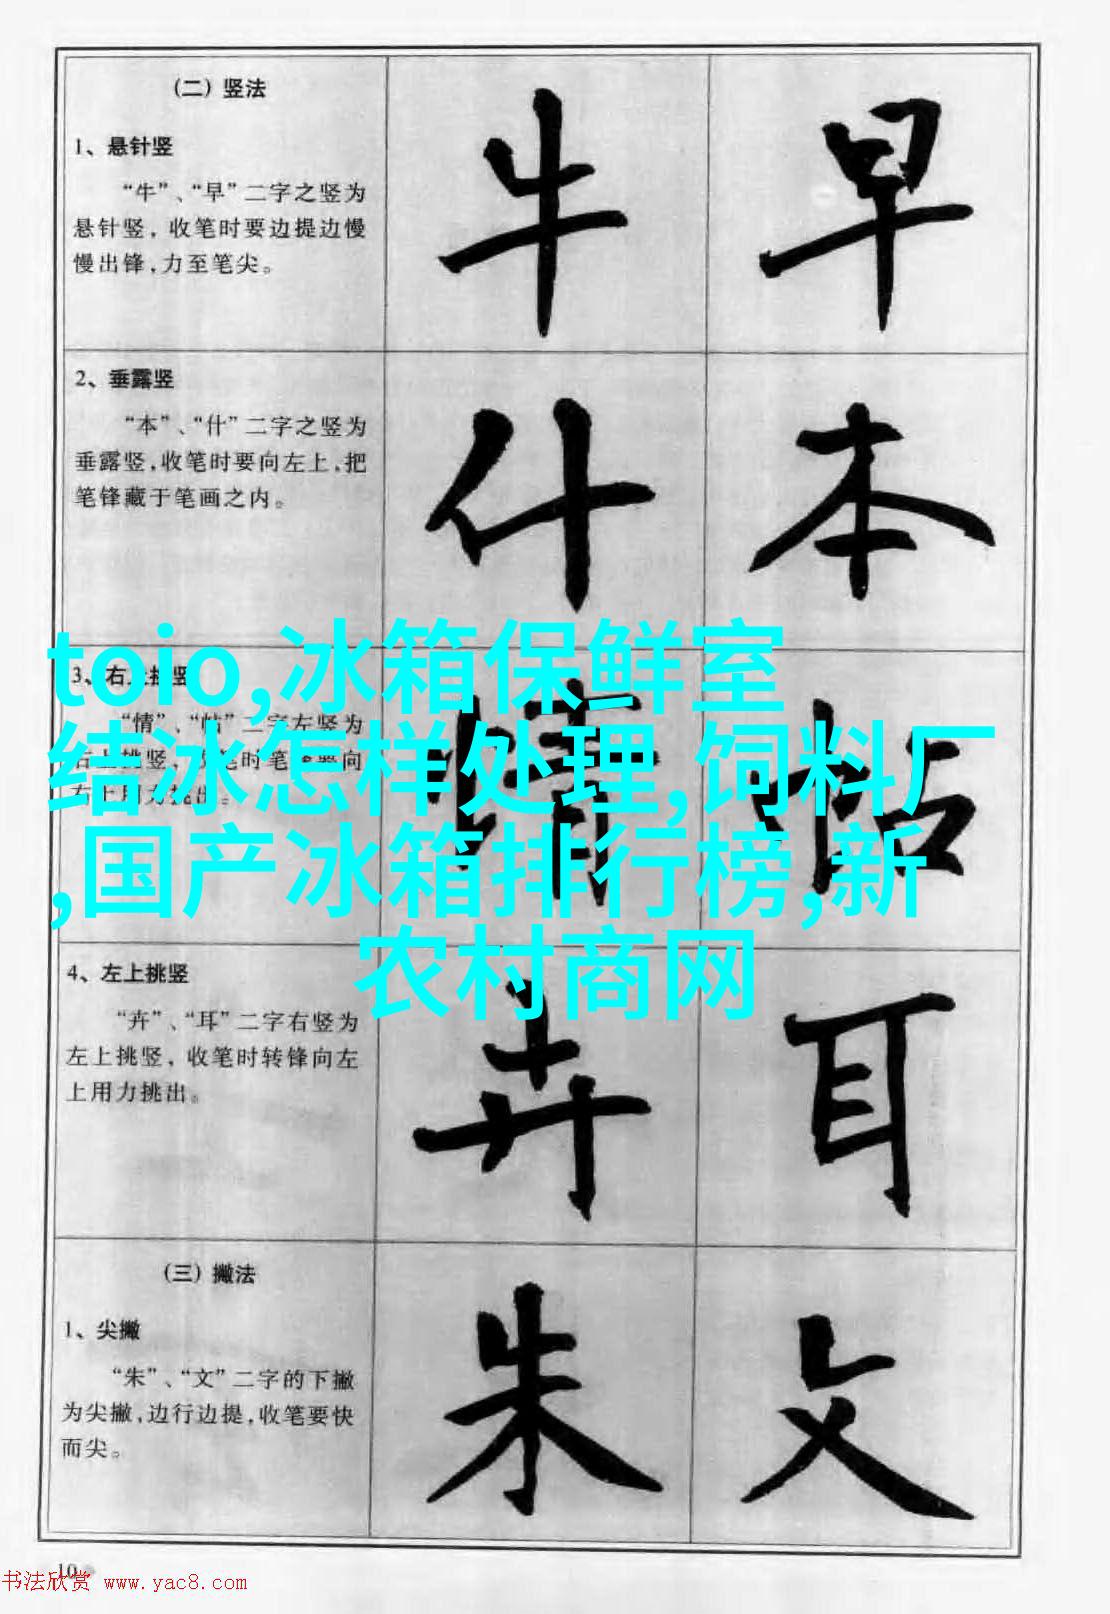 （二）竖法
1、悬针竖
“牛”、“早”二字之竖为
悬针竖，收笔时要边提边慢
慢出锋，力至笔尖。
牛 早
2、垂露竖
“本”、“什”二字之竖为
垂露竖，收笔时要向左上，把
笔锋藏于笔画之内。
什 本
toio,冰箱保鲜室
结冰怎样处理,饲料厂
,国产冰箱排行榜,新
农村商网
3、右上挑竖
“情”、“帖”二字左竖为
情 帖
4、左上挑竖
“卉”、“耳”二字右竖为
左上挑竖，收笔时转锋向左
上用力挑出。
卉 耳
（三）撇法
1、尖撇
“朱”、“文”二字的下撇
为尖撇，边行边提，收笔要快
而尖。
朱 文
10
书法欣赏 www.yac8.com